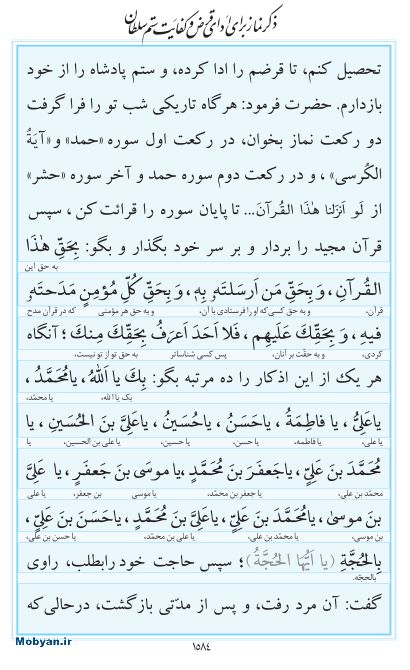 ذکر نماز برای ادای قرض و کفایت ستم سلطان
تحصیل کنم، تا قرضم را ادا کرده، و ستم پادشاه را از خود
بازدارم. حضرت فرمود: هرگاه تاریکی شب تو را فرا گرفت
دو رکعت نماز بخوان، در رکعت اول سوره «حمد» و «آیَةُ
الکُرسی» ، و در رکعت دوم سوره حمد و آخر سوره «حشر»
از لَو اَنزَلنا هٰذَا القُرآنَ... تا پایان سوره را قرائت کن ، سپس
قرآن مجید را بردار و بر سر خود بگذار و بگو: بِحَقِّ هٰذَا
به حق این
القُرآنِ ، وَ بِحَقِّ مَن اَرسَلتَهُ بِهِ ، وَ بِحَقِّ کُلِّ مُؤمِنٍ مَدَحتَهُ
قرآن، و به حق کسی که او را فرستادی با آن، و به حق هر مؤمنی که در قرآن مدح
فیهِ ، وَ بِحَقِّکَ عَلَیهِم ، فَلا اَحَدَ اَعرَفُ بِحَقِّکَ مِنکَ ؛ آنگاه
کردی، و به حقّت بر آنان، پس کسی شناساتر به حق تو از تو نیست،
هر یک از این اذکار را ده مرتبه بگو: بِکَ یا اَللهُ ، یا مُحَمَّدُ ،
بک یا الله، یا محمّد،
یا عَلِیُّ ، یا فاطِمَةُ ، یاحَسَنُ ، یاحُسَینُ ، یاعَلِیَّ بنَ الحُسَینِ ، یا
یا علی، یا فاطمه، یا حسن، یا حسین، یا علی بن الحسین، یا
مُحَمَّدَ بنَ عَلِیٍّ ، یاجَعفَرَ بنَ مُحَمَّدٍ ،یا موسَی بنَ جَعفَرٍ ، یا عَلِیَّ
محمّد بن علی، یا جعفر بن محمّد، یا موسی بن جعفر، یا علی
بنَ موسیٰ ، یامُحَمَّدَ بنَ عَلِیٍّ ، یاعَلِیَّ بنَ مُحَمَّدٍ ، یاحَسَنَ بنَ عَلِیٍّ ،
بن موسی، یا محمّد بن علی، یا علی بن محمّد، یا حسن بن علی،
بِالحُجَّةِ (یا اَیُّهَا الحُجَّةُ) ؛ سپس حاجت خود رابطلب، راوی
بالحجّه.
گفت: آن مرد رفت، و پس از مدّتی بازگشت، درحالی‌که
١٥٨٤
Mobyan.ir